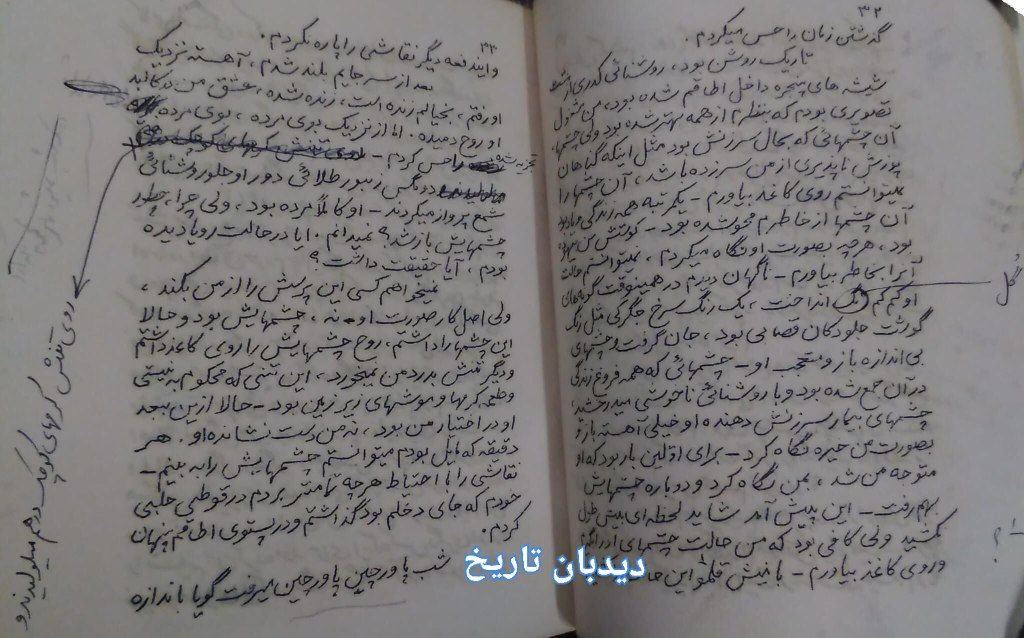 ۳۲
گذشتن زمان را حس میکردم.
تاریک روشن بود، روشنائی کدری از پشت
شیشه های پنجره داخل اطاقم شده بود، من مشغول
تصویری بودم که بنظرم از همه بهتر شده بود ولی چشمها،
آن چشمهائی که بحال سرزنش بود مثل اینکه گناهان
پوزش ناپذیری از من سرزده باشد، آن چشمها را
نمیتوانستم روی کاغذ بیاورم - یکمرتبه همه زندگی و یاد بود
آن چشمها از خاطرم محو شده بود - کوشش من بیهوده
بود، هرچه بصورت او نگاه میکردم، نمیتوانستم حالت
آنرا بخاطر بیاورم - ناگهان دیدم در همینوقت گونه های
او کم کم رنگ انداخت، یک رنگ سرخ جگرکی مثل رنگ
گل
گوشت جلو دکان قصابی بود، جان گرفت و چشمهای
بی اندازه باز و متعجب او - چشمهائی که همه فروغ زندگی
در آن جمع شده بود و با روشنائی ناخوشی میدرخشید،
چشمهای بیمار سرزنش دهنده او خیلی آهسته باز و
بصورت من خیره نگاه کرد - برای اولین بار بود که او
متوجه من شد، بمن نگاه کرد و دوباره چشمهایش
بهم رفت - این پیش آمد شاید لحظه ای بیش طول
نکشید ولی کافی بود که من حالت چشمهای او را بگیرم
و روی کاغذ بیاورم - با نیش قلمو این حالت
؟
۳۳
و ایندفعه دیگر نقاشی را پاره نکردم.
بعد از سر جایم بلند شدم، آهسته نزدیک
او رفتم، بخیالم زنده است، زنده شده، عشق من در کالبد
او روح دمیده. اما از نزدیک بوی مرده، بوی مرده
تجزیه شده را حس کردم -
روی تنش کرمهای کوچک درهم میلولیدند و
دو مگس زنبور طلائی دور او جلو روشنائی
شمع پرواز میکردند - او کاملاً مرده بود، ولی چرا، چطور
چشمهایش باز شد؟ نمیدانم. آیا در حالت رویا دیده
بودم، آیا حقیقت داشت؟
نمیخواهم کسی این پرسش را از من بکند،
ولی اصل کار صورت او - نه، چشمهایش بود و حالا
این چشمها را داشتم، روح چشمهایش را روی کاغذ داشتم
و دیگر تنش بدرد من نمیخورد، این تنی که محکوم به نیستی
و طعمه کرمها و موشهای زیر زمین بود - حالا ازین ببعد
او در اختیار من بود، نه من دست نشانده او. هر
دقیقه که مایل بودم میتوانستم چشمهایش را به بینم -
نقاشی را با احتیاط هرچه تمامتر بردم در قوطی حلبی
خودم که جای دخلم بود گذاشتم و در پستوی اطاقم پنهان
کردم.
شب پاورچین پاورچین میرفت گویا باندازه
دیدبان تاریخ